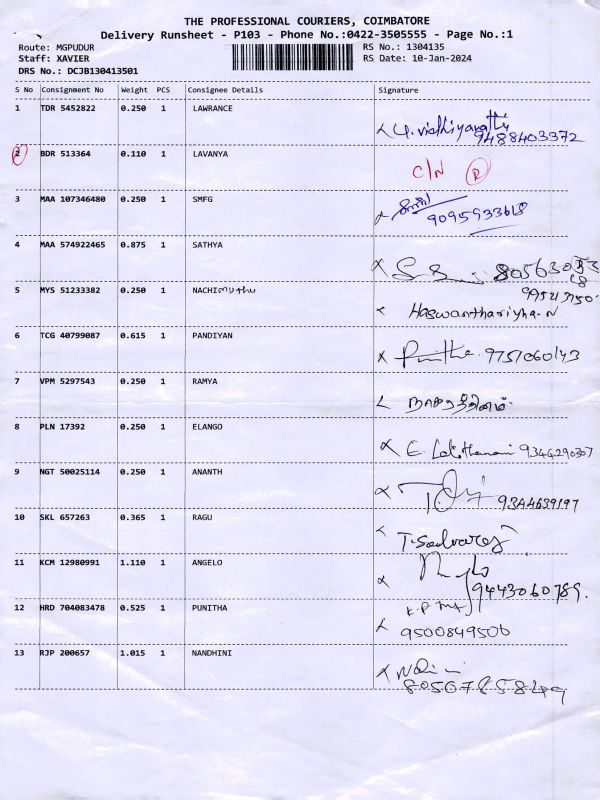 THE PROFESSIONAL COURIERS, COIMBATORE
Delivery Runsheet - P103 - Phone No.:0422-3505555 - Page No.:1
Route: MGPUDUR RS No.: 1304135
Staff: XAVIER RS Date: 10-Jan-2024
DRS No.: DCJB130413501
S No Consignment No Weight PCS Consignee Details Signature
1 TDR 5452822 0.250 1 LAWRANCE
9488403372
2 BDR 513364 0.110 1 LAVANYA
C/N R
3 MAA 107346480 0.250 1 SMFG
4 MAA 574922465 0.875 1 SATHYA
5 MYS 51233382 0.250 1 NACHI
Haswanthariyha-N
6 TCG 40799087 0.615 1 PANDIYAN
9751060143
7 VPM 5297543 0.250 1 RAMYA
8 PLN 17392 0.250 1 ELANGO
9344290307
9 NGT 50025114 0.250 1 ANANTH
9344639197
10 SKL 657263 0.365 1 RAGU
11 KCM 12980991 1.110 1 ANGELO
9443060789.
12 HRD 704083478 0.525 1 PUNITHA
9500849506
13 RJP 200657 1.015 1 NANDHINI